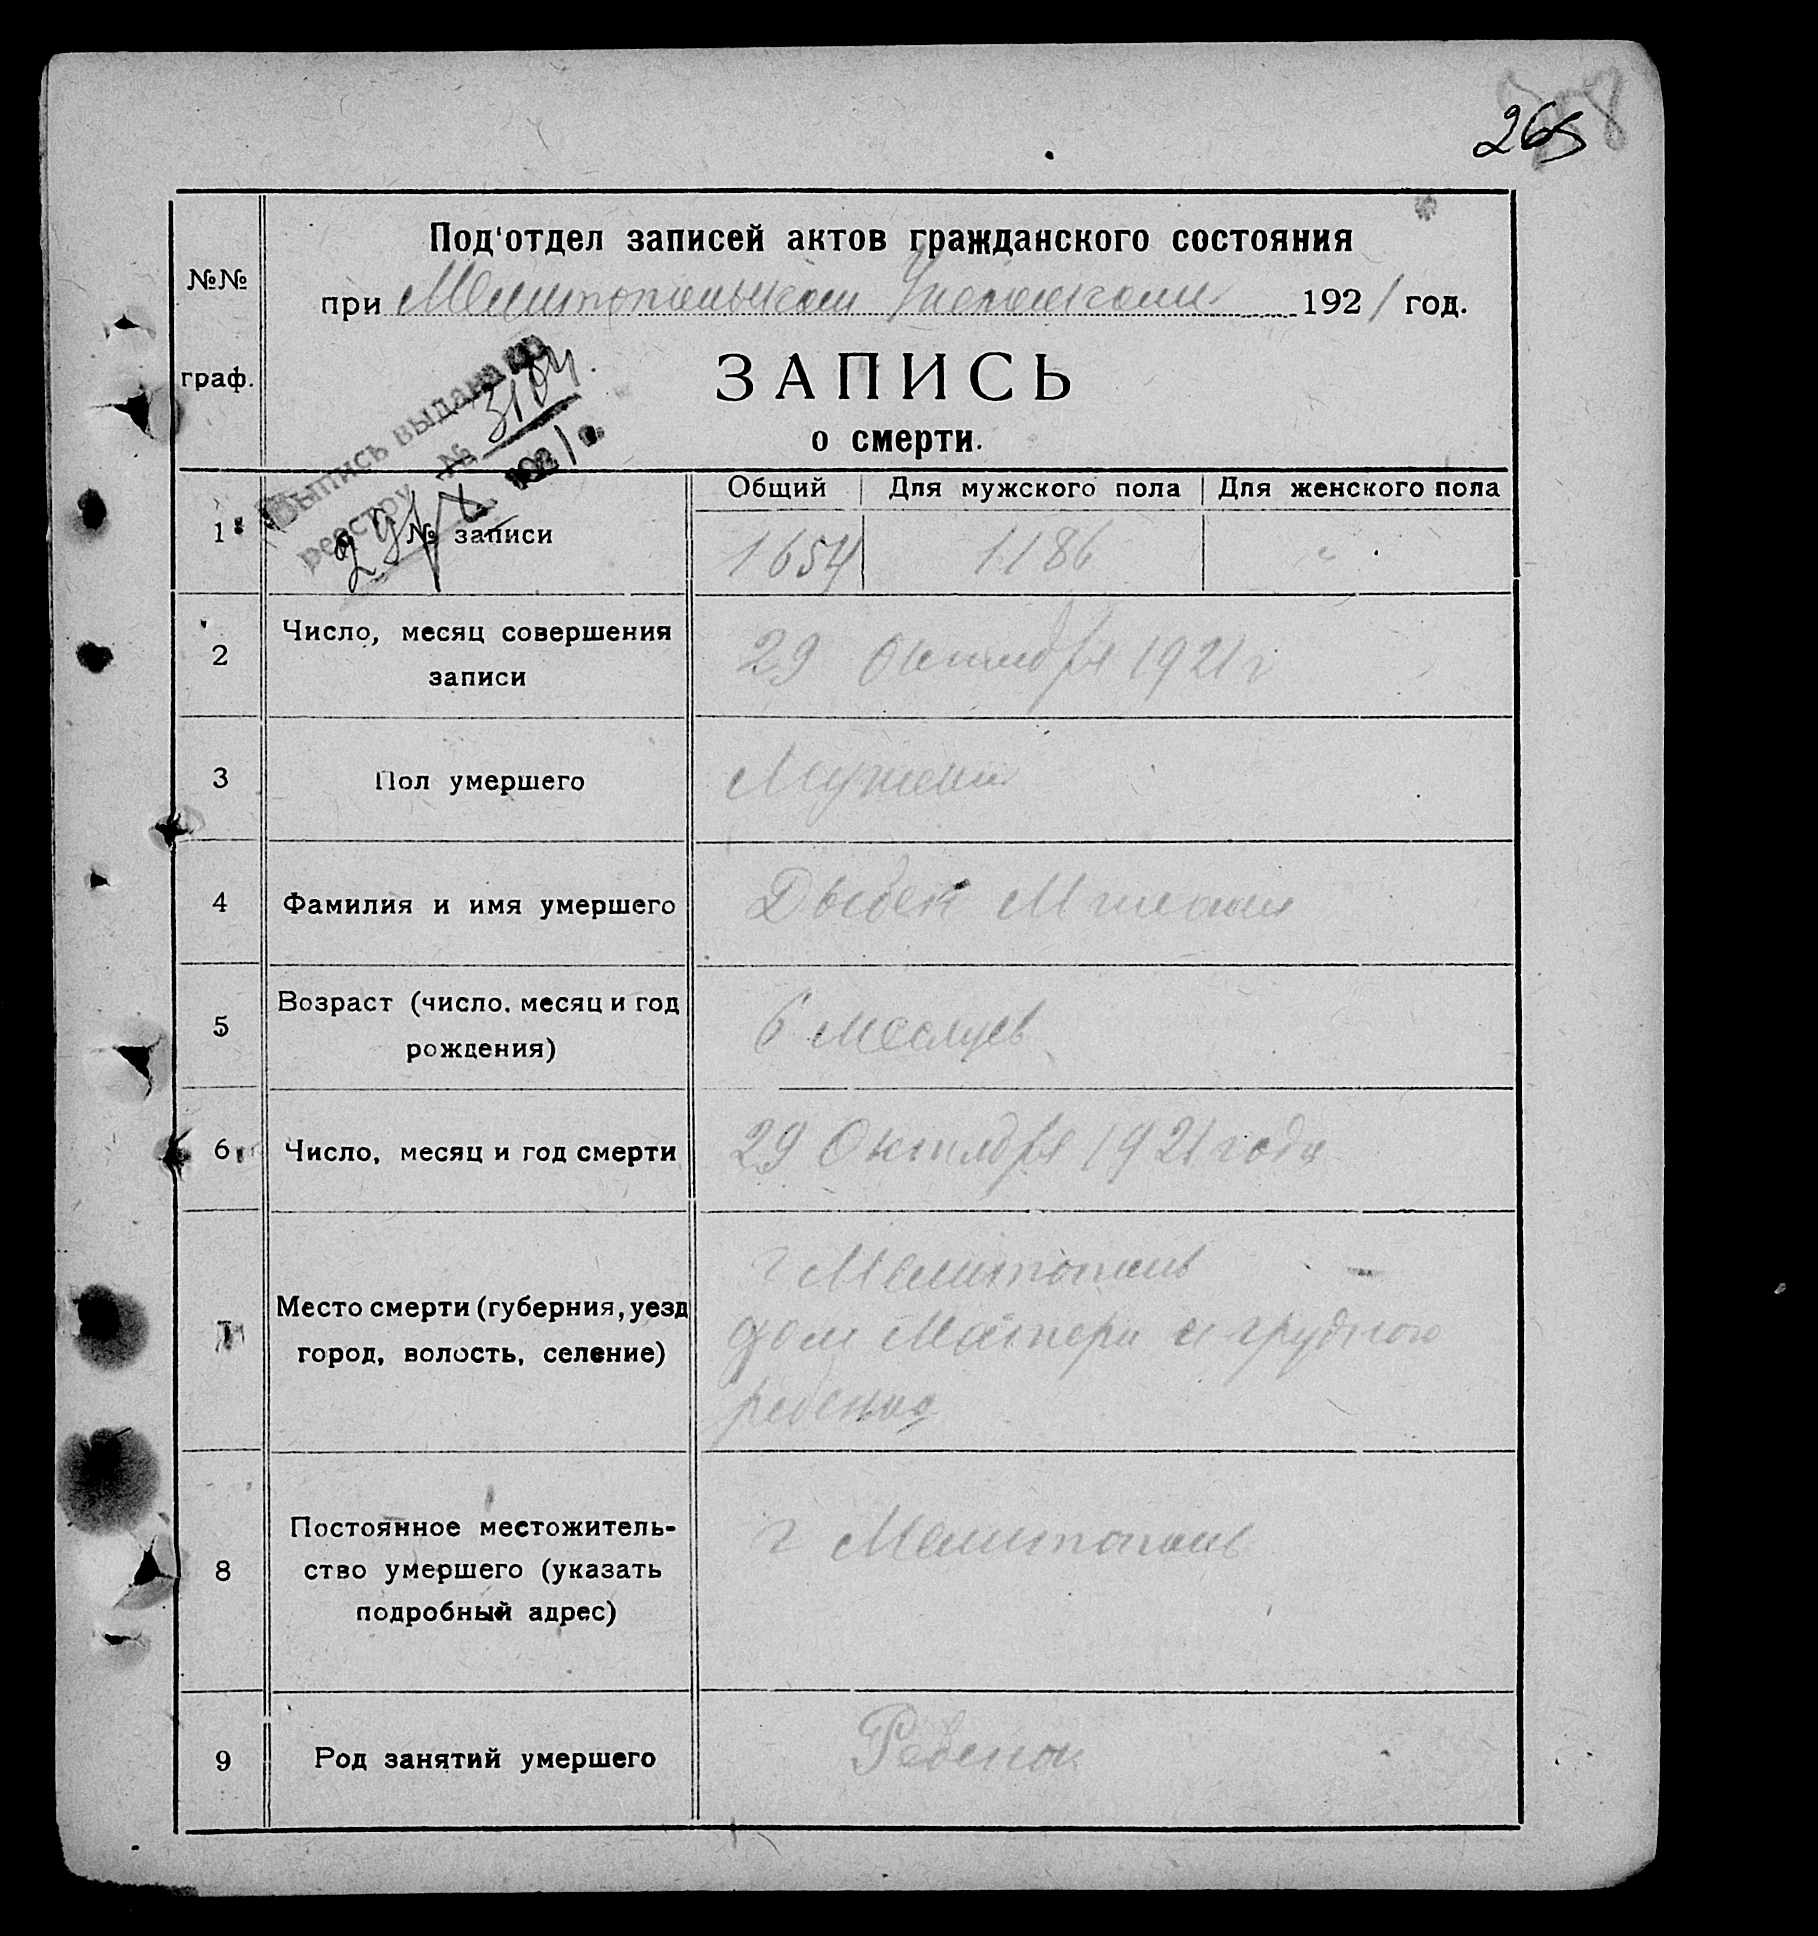 265
№№
граф.
Под'отдел записей актов гражданского состояния
при Мелитопольском Уисполкоме 1921 год.
ЗАПИСЬ
о смерти.
Выпись выдана по
реестру № 3184.
29/X 1921 г.
1 № записи
Общий Для мужского пола Для женского пола
1654 1186 "
2 Число, месяц совершения
записи
29 Октября 1921 г
3 Пол умершего
4 Фамилия и имя умершего
Дыбек Михаил
5 Возраст (число, месяц и год
рождения)
6 месяцев
6 Число, месяц и год смерти
29 Октября 1921 года
7 Место смерти (губерния, уезд
город, волость, селение)
г Мелитополь
дом Матери и грудного
ребенка
8 Постоянное местожитель-
ство умершего (указать
подробный адрес)
г Мелитополь
9 Род занятий умершего
Ребенок